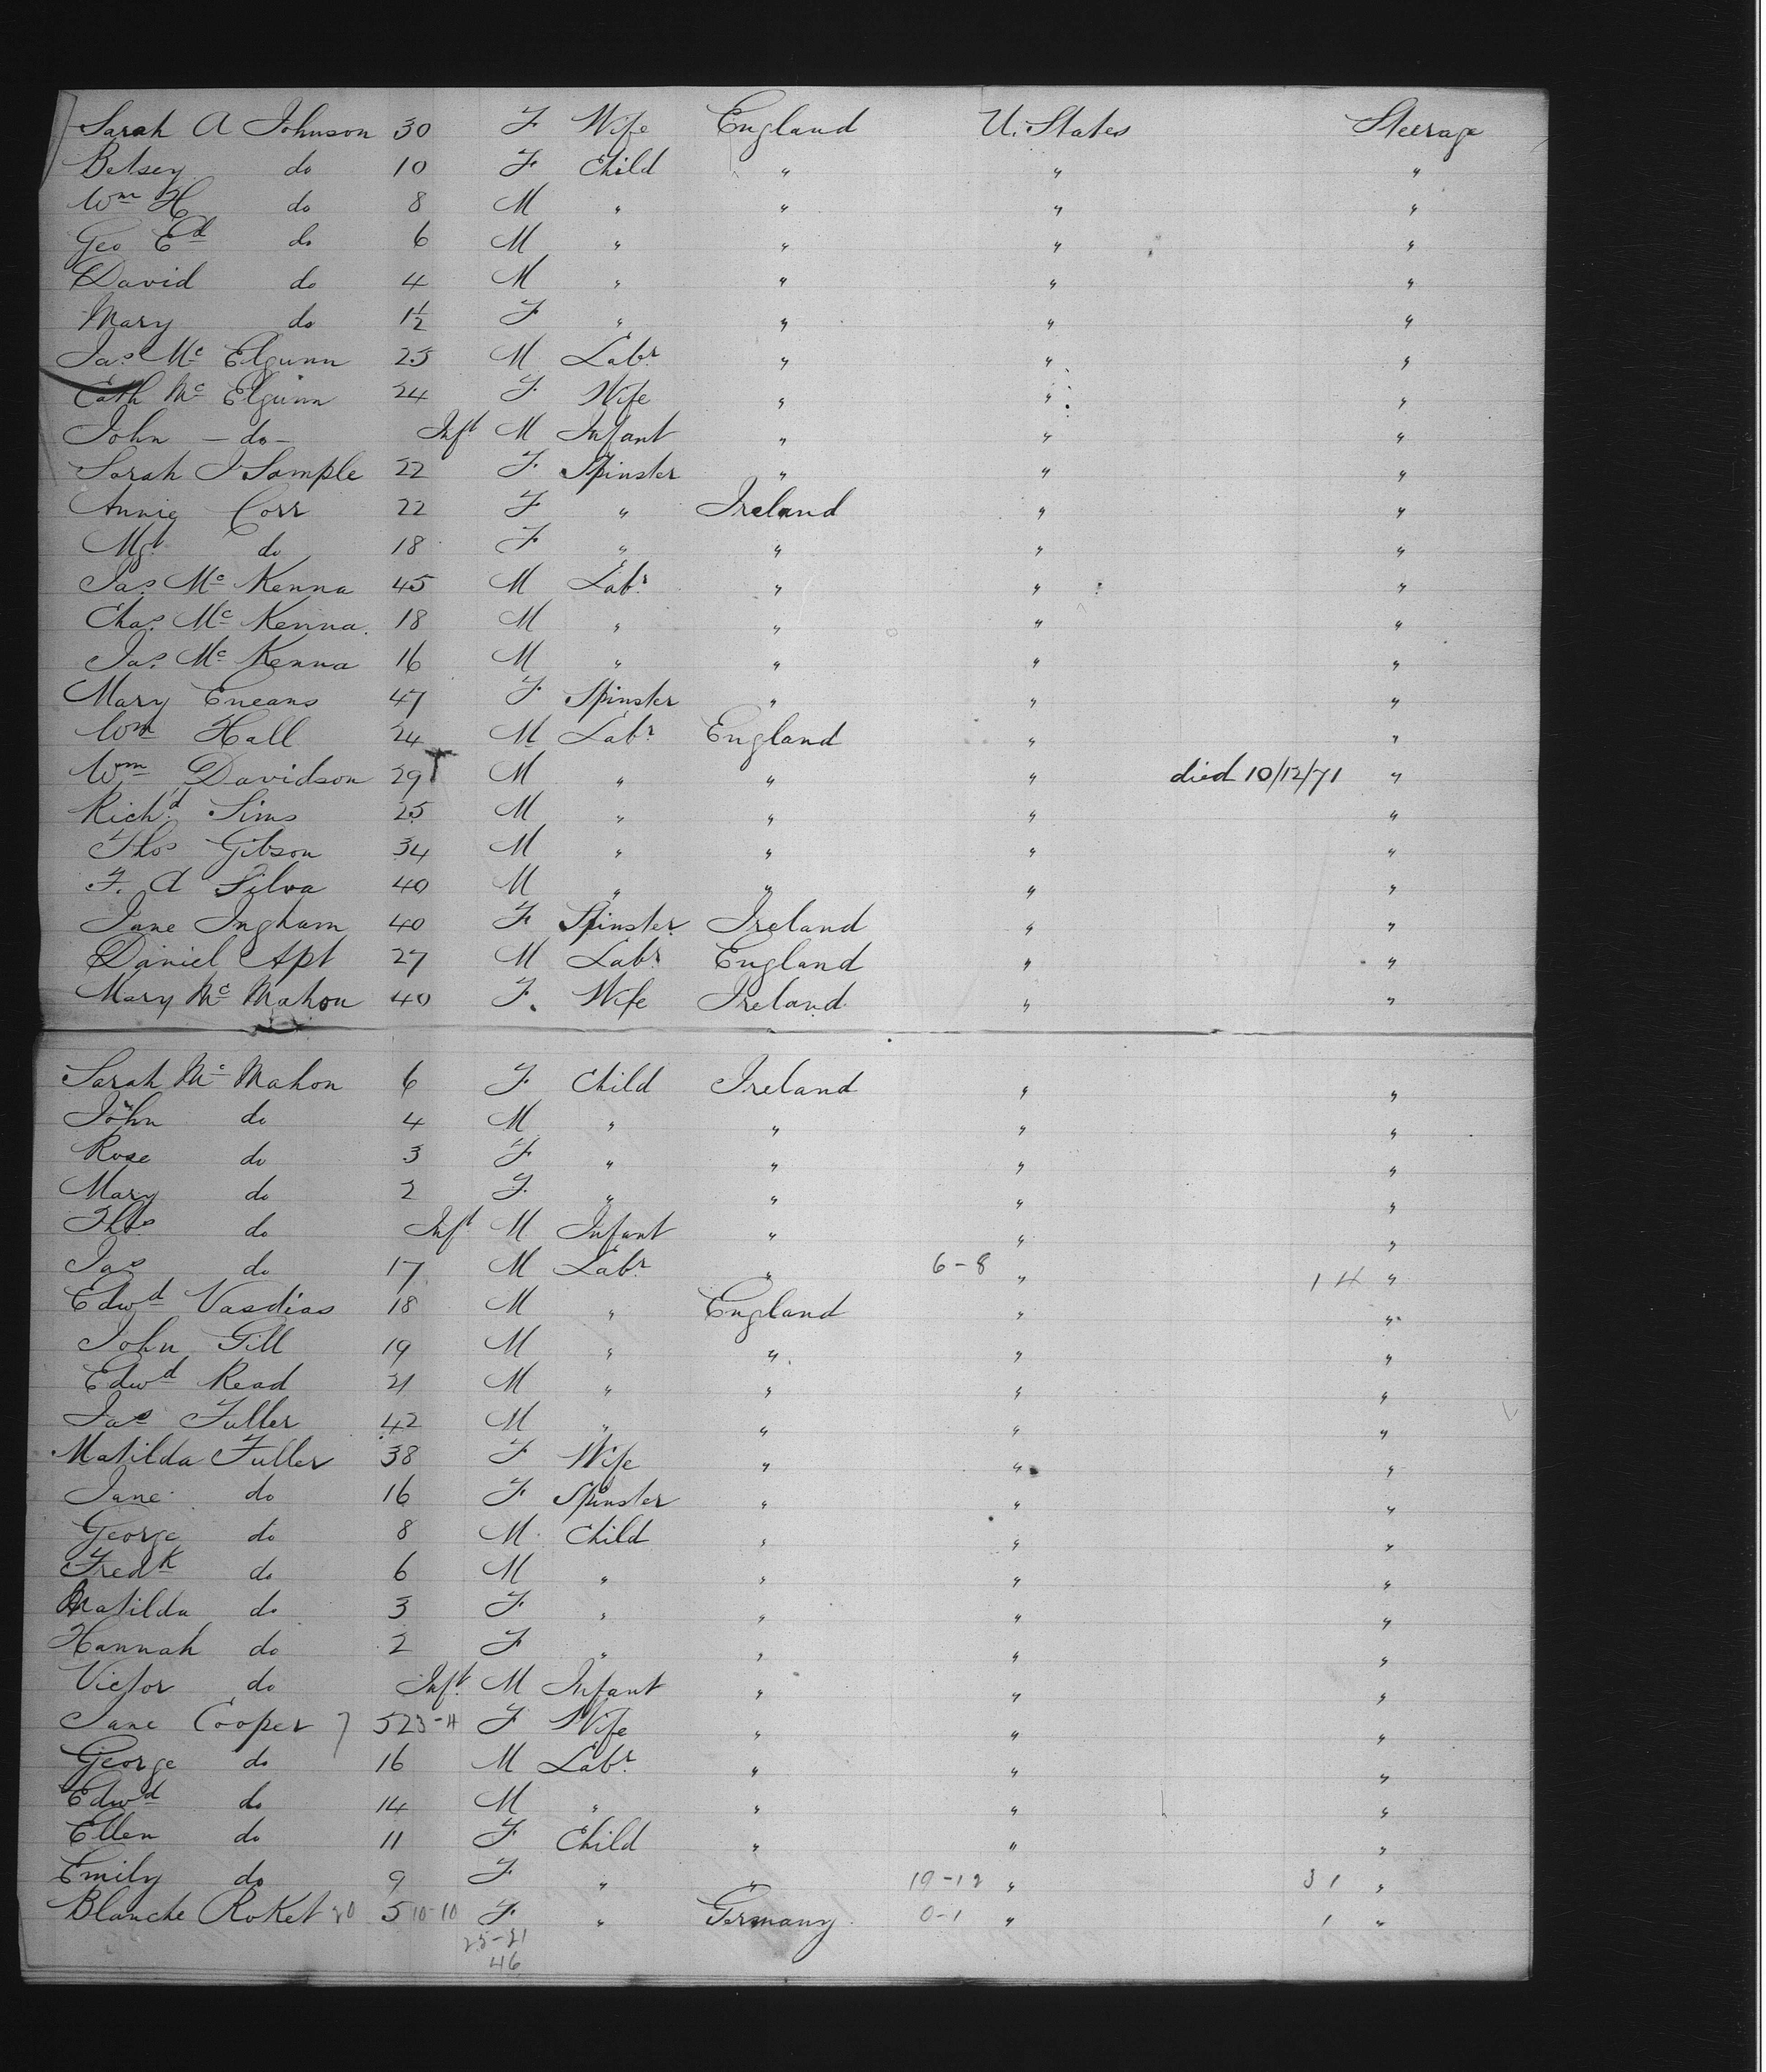 Sarah A Johnson 30 F Wife England U. States Steerage
Betsey do 10 F Child " " "
Wm H do 8 M " " " "
Geo Ed do 6 M " " " "
David do 4 M " " " "
Mary do 1½ F " " " "
Jas. Mc Elgunn 25 M Labr " " "
Cath Mc Elgunn 24 F Wife " " "
John - do - Inft M Infant " " "
Sarah J Sample 22 F Spinster " " "
Annie Corr 22 F " Ireland " "
Mgt do 18 F " " " "
Jas. Mc Kenna 45 M Labr. " " "
Chas. Mc Kenna. 18 M " " " "
Jas. Mc Kenna 16 M " " " "
Mary Eneans 47 F Spinster " " "
Wm Hall 24 M Labr. England " "
Wm Davidson 29 M " " " died 10/12/71 "
Richd. Sims 25 M " " " "
Thos Gibson 34 M " " " "
F. A Silva 40 M " " " "
Jane Ingham 40 F Spinster Ireland " "
Daniel Apt 27 M Labr England " "
Mary Mc Mahon 40 F. Wife Ireland " "
Sarah Mc Mahon 6 F Child Ireland " "
John do 4 M " " " "
Rose do 3 F " " " "
Mary do 2 F " " " "
Thos do Inft M Infant " " "
Jas do 17 M Labr " 6-8 " 14 "
Edwd Vasdias 18 M " England " "
John Gill 19 M " " " "
Edwd Read 21 M " " " "
Jas Fuller 42 M " " " "
Matilda Fuller 38 F Wife " " "
Jane do 16 F Spinster " " "
George do 8 M Child " " "
Fredk do 6 M " " " "
Matilda do 3 F " " " "
Hannah do 2 F " " " "
Victor do Inft. M Infant " " "
Jane Cooper 7 52 3-4 F Wife " " "
George do 16 M Labr. " " "
Edwd do 14 M " " " "
Ellen do 11 F Child " " "
Emily do 9 F " " 19-12 " 31 "
Blanche RoKet 20 5 10-10 F " Germany 0-1 " 1 "
25-21
46